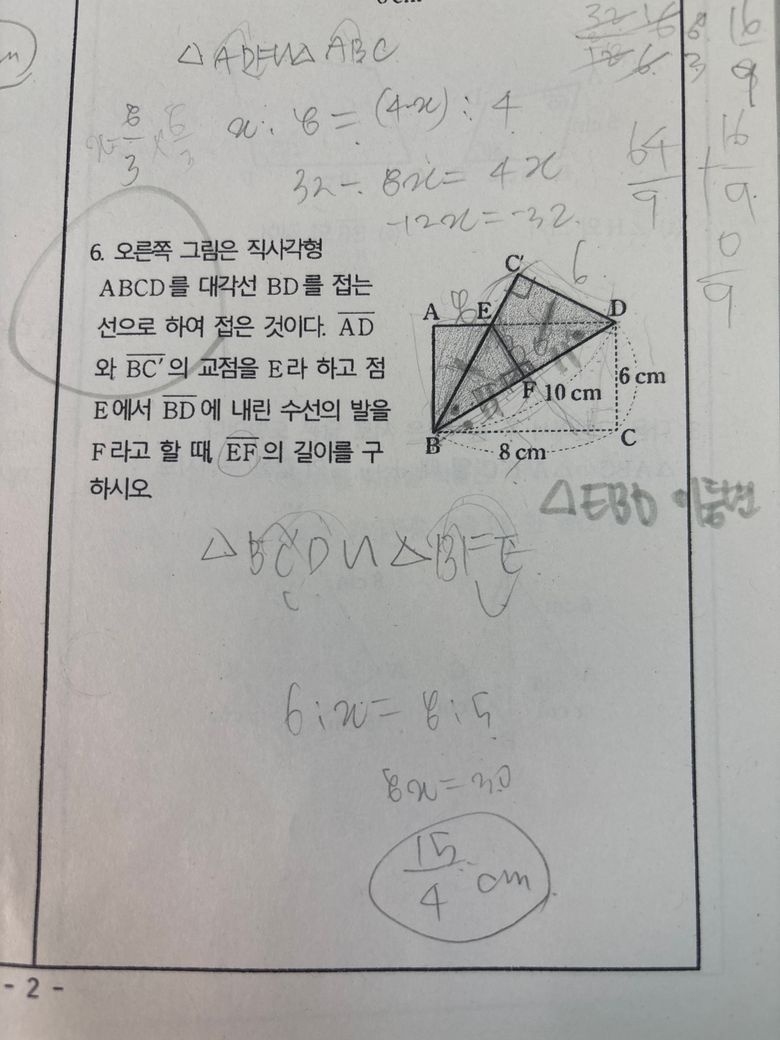 △ADE∽△ABC
x : 8 = (4-x) : 4
32 - 8x = 4x
-12x = -32
x = 8/3
64/9 + 16/9
6. 오른쪽 그림은 직사각형
ABCD를 대각선 BD를 접는
선으로 하여 접은 것이다. AD
와 BC′의 교점을 E라 하고 점
E에서 BD에 내린 수선의 발을
F라고 할 때, EF의 길이를 구
하시오
C′
6
A
8
E
D
F
10 cm
6 cm
B
8 cm
C
△EBD 이등변
△BCD∽△BFE
6 : x = 8 : 5
8x = 30
15/4 cm
- 2 -